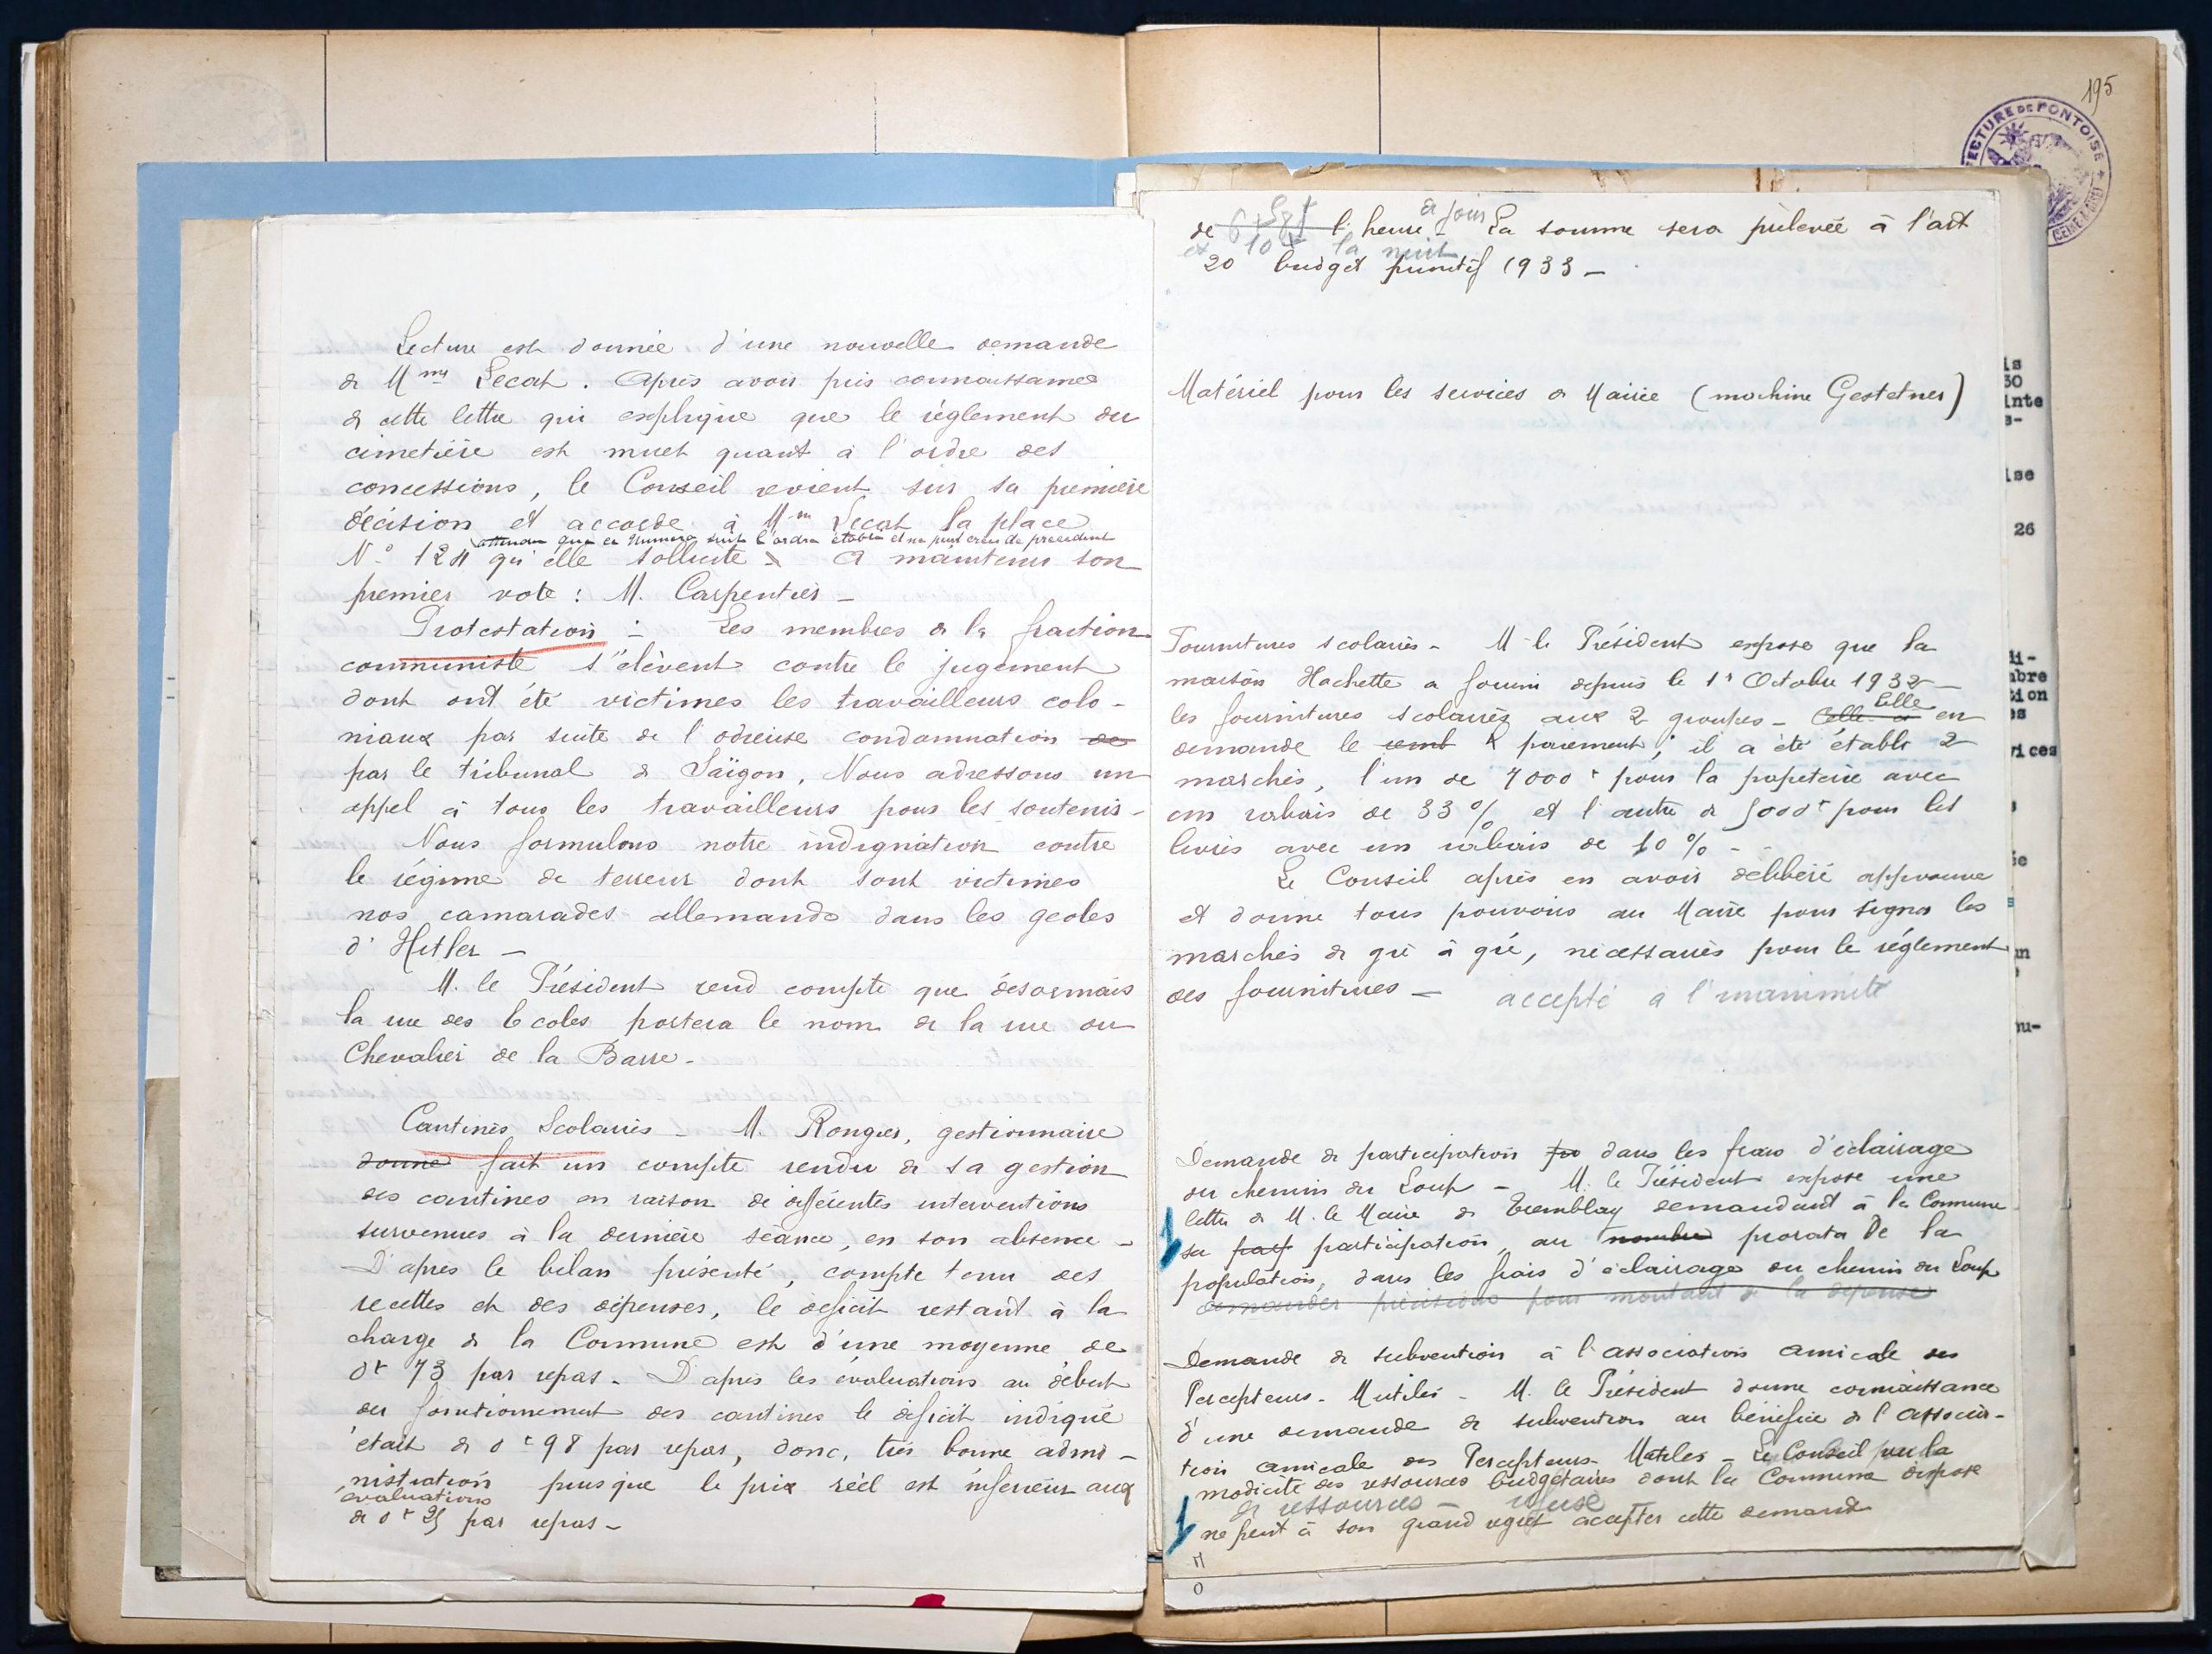 Lecture est donnée d'une nouvelle demande
de Mme Lecat. Après avoir pris connaissance
de cette lettre qui explique que le règlement du
cimetière est muet quant à l'ordre des
concessions, le Conseil revient sur sa première
décision et accorde à Mme Lecat la place
attendu que ce numéro suit l'ordre établi et ne peut créer de précédent
N° 124 qu'elle sollicite. A maintenu son
premier vote : M. Carpentier -
Protestation : Les membres de la fraction
communiste s'élèvent contre le jugement
dont ont été victimes les travailleurs colo-
niaux par suite de l'odieuse condamnation de
par le tribunal de Saïgon, Nous adressons un
appel à tous les travailleurs pour les soutenir -
Nous formulons notre indignation contre
le régime de terreur dont sont victimes
nos camarades allemands dans les geoles
d'Hitler -
M. le Président rend compte que désormais
la rue des Ecoles portera le nom de la rue du
Chevalier de la Barre -
Cantines Scolaires - M. Rongier, gestionnaire
donne fait un compte rendu de sa gestion
des cantines en raison de différentes interventions
survenues à la dernière séance, en son absence -
D'après le bilan présenté, compte tenu des
recettes et des dépenses, le déficit restant à la
charge de la Commune est d'une moyenne de
0f 73 par repas - D'après les évaluations au début
du fonctionnement des cantines le déficit indiqué
était de 0f 98 par repas, donc, très bonne admi-
nistration puisque le prix réel est inférieur aux
évaluations
de 0f 25 par repas -
195
ECTURE DE PONTOISE
de l'heure de jour La somme sera prélevée à l'art
et 10f la nuit
20 budget primitif 1933 -
Matériel pour les services de Mairie (machine Gestetner)
Fournitures scolaires - M le Président expose que la
maison Hachette a fourni depuis le 1r Octobre 1932
les fournitures scolaires aux 2 groupes - Celle a Elle en
demande le remb le paiement ; il a été établi 2
marchés, l'un de 7000f pour la papeterie avec
un rabais de 33 % et l'autre de 5000f pour les
livres avec un rabais de 10 % -
Le Conseil après en avoir délibéré approuve
et donne tous pouvoirs au Maire pour signer les
marchés de gré à gré, nécessaires pour le règlement
des fournitures - accepté à l'unanimité
Demande de participation dans les frais d'éclairage
du chemin du Loup - M. le Président expose une
lettre de M. le Maire de Tremblay demandant à la Commune
sa part participation, au nombre prorata De la
population, dans les frais d'éclairage du chemin du Loup
demander précisions pour montant de la dépense
Demande de subvention à l'association amicale des
Percepteurs - Mutilés - M. le Président donne connaissance
d'une demande de subvention au bénéfice de l'Associa-
tion amicale des Percepteurs - Mutilés - Le Conseil vu la
modicité des ressources budgétaires dont la Commune dispose
de ressources - refuse
ne peut à son grand regret accepter cette demande
is
30
inte
s-
ise
26
di-
mbre
tion
es
vices
un
ou-